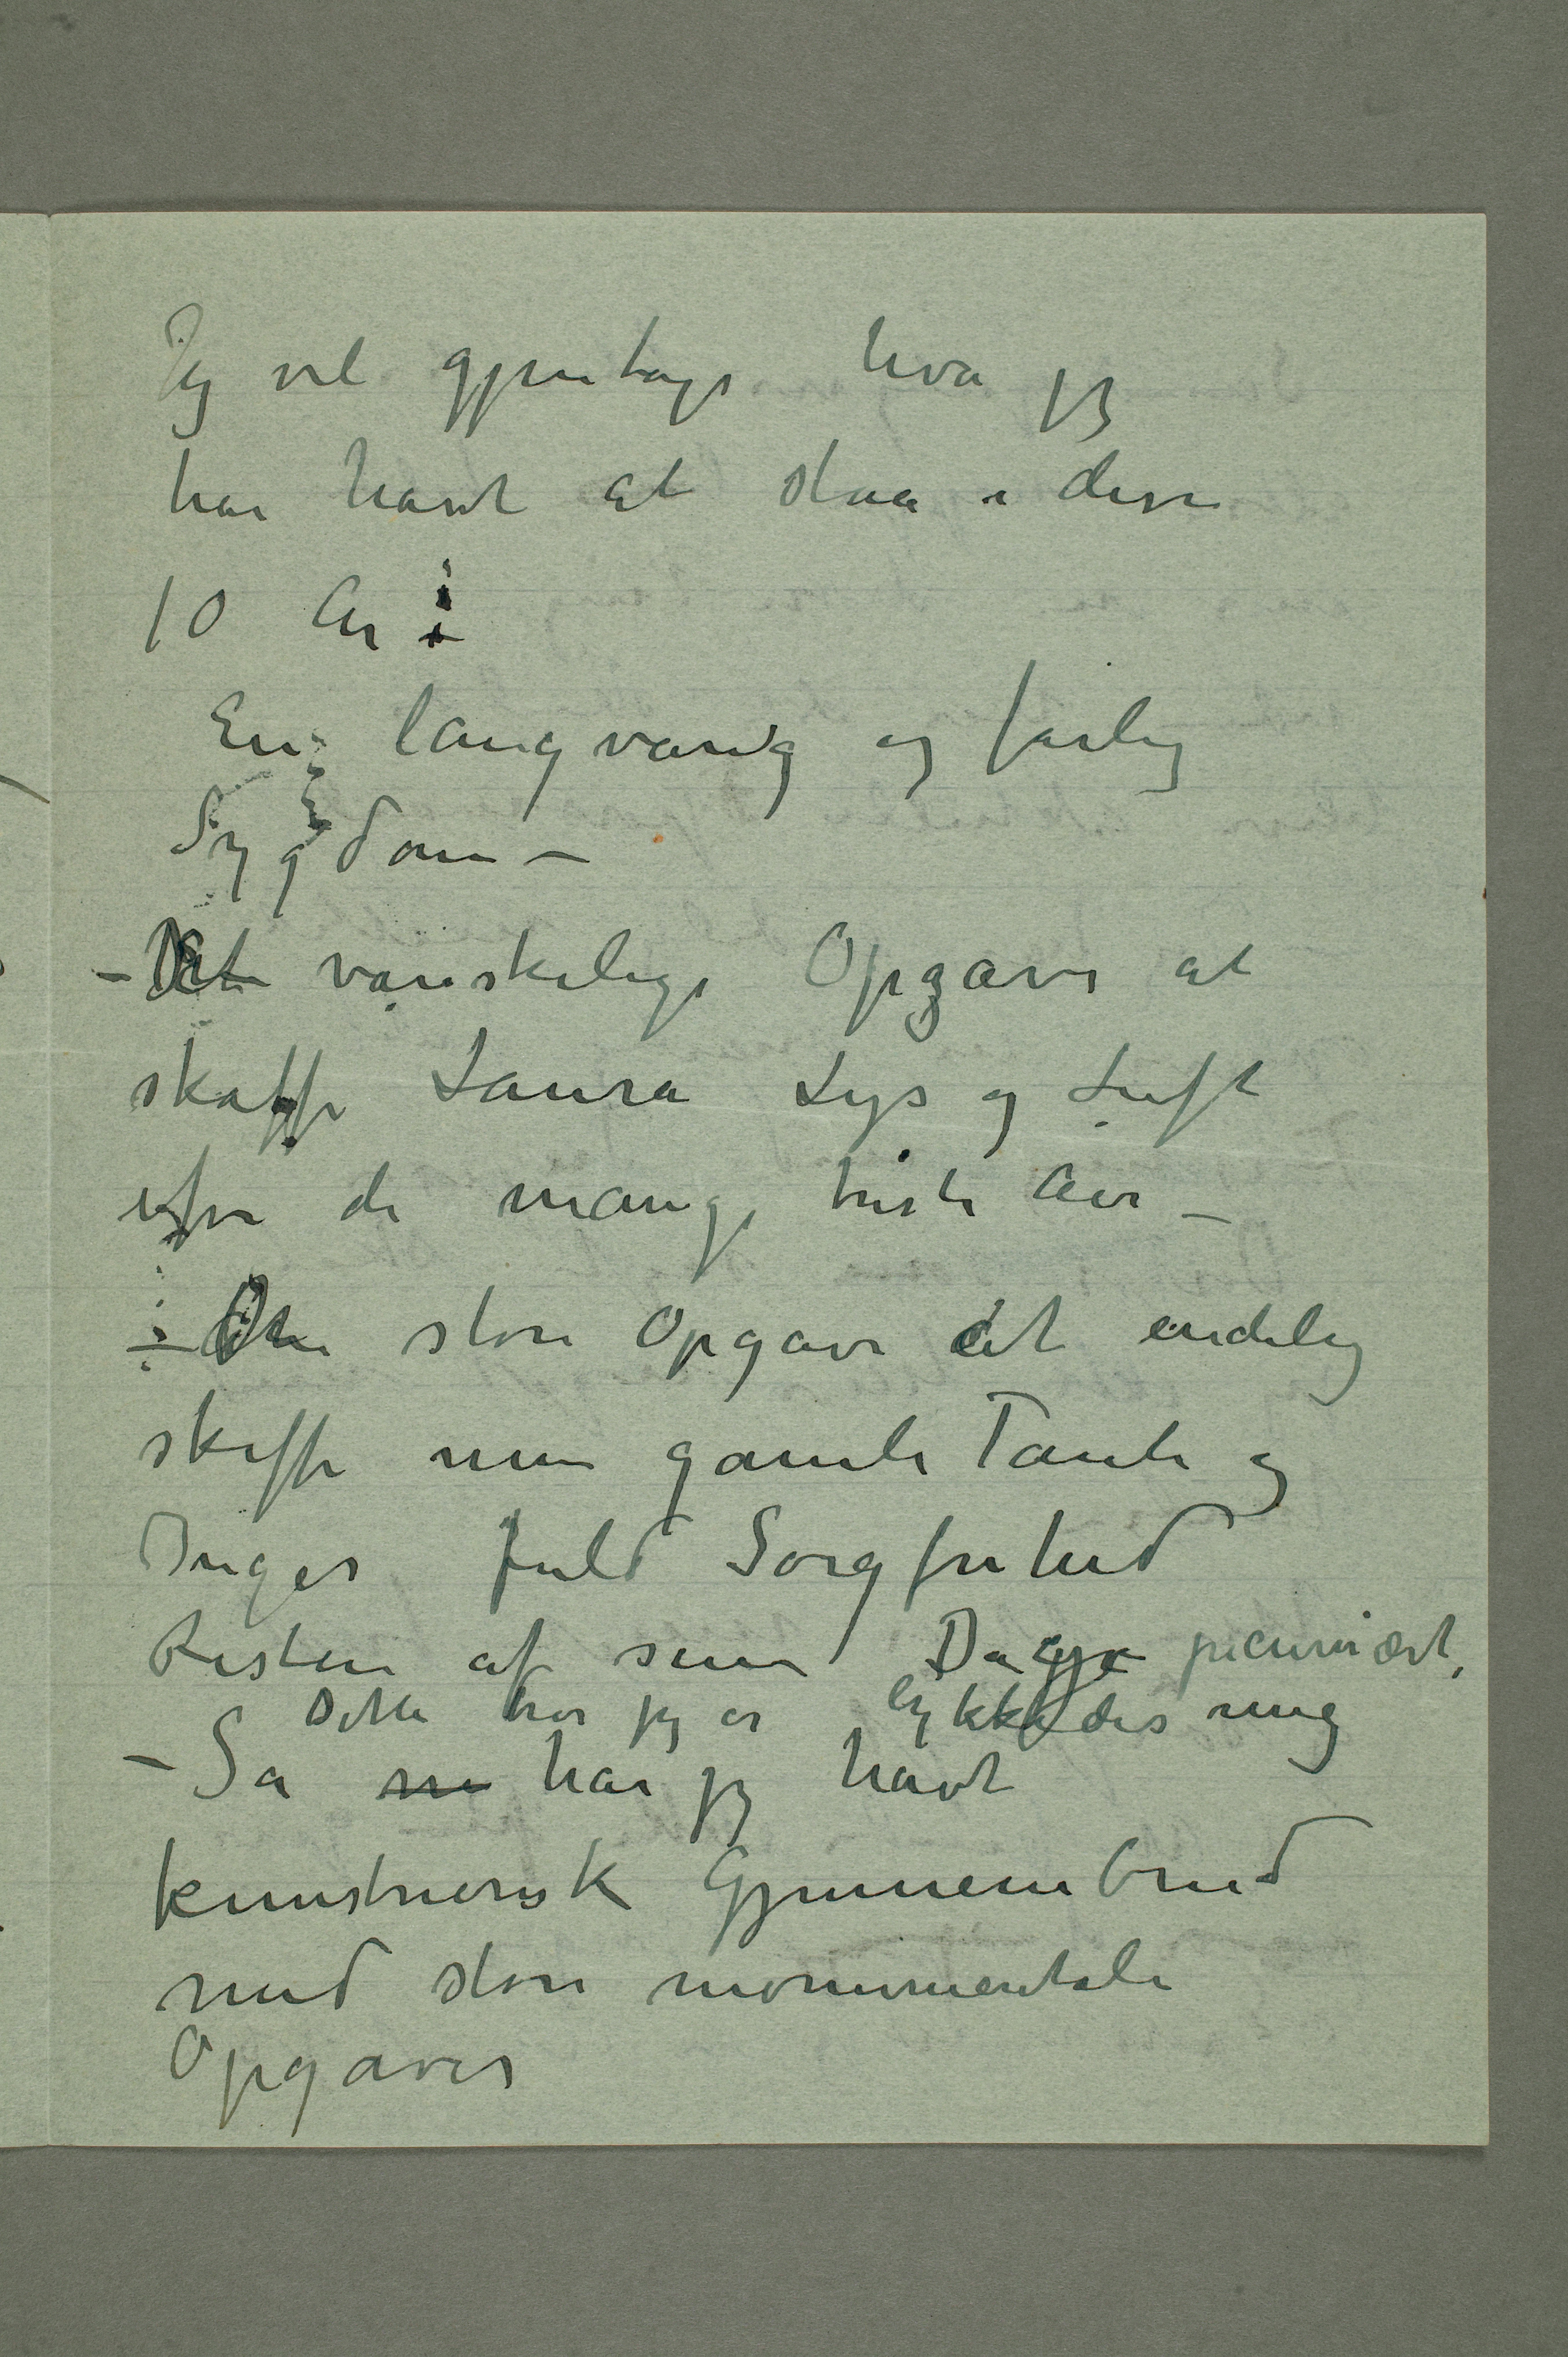 Jeg vil gjentage hva jeg
har havt at staa i disse
10 År :
En langvarig og farlig
Sygdom –
– Det vanskelige Opgave at
skaffe Laura Lys og Luft
efter de mange triste Aar –
– Den store Opgave at endelig
skaffe min gamle Tante og
Inger fuld Sorgfrihed
Resten af sine Dage pecuniært,
Dette tror jeg er lykkedes mig
– Så har jeg havt
kunstnerisk Gjennembrud
med store monumentale
Opgaver